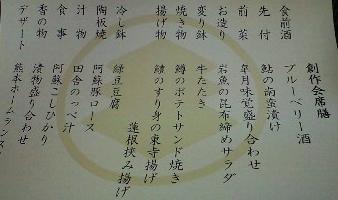 創作会席膳
食前酒 ブルーベリー酒
先付 鮎の南蛮漬け
前菜 皐月味覚盛り合わせ
お造り 岩魚の昆布締めサラダ
変り鉢 牛たたき
焼き物 鱒のポテトサンド焼き
揚げ物 鱧のすり身の東寺揚げ
蓮根挟み揚げ
冷し鉢 緑豆豆腐
陶板焼 阿蘇豚ロース
汁物 田舎のっぺ汁
食事 阿蘇こしひかり
香の物 漬物盛り合わせ
デザート 熊本ホームランス